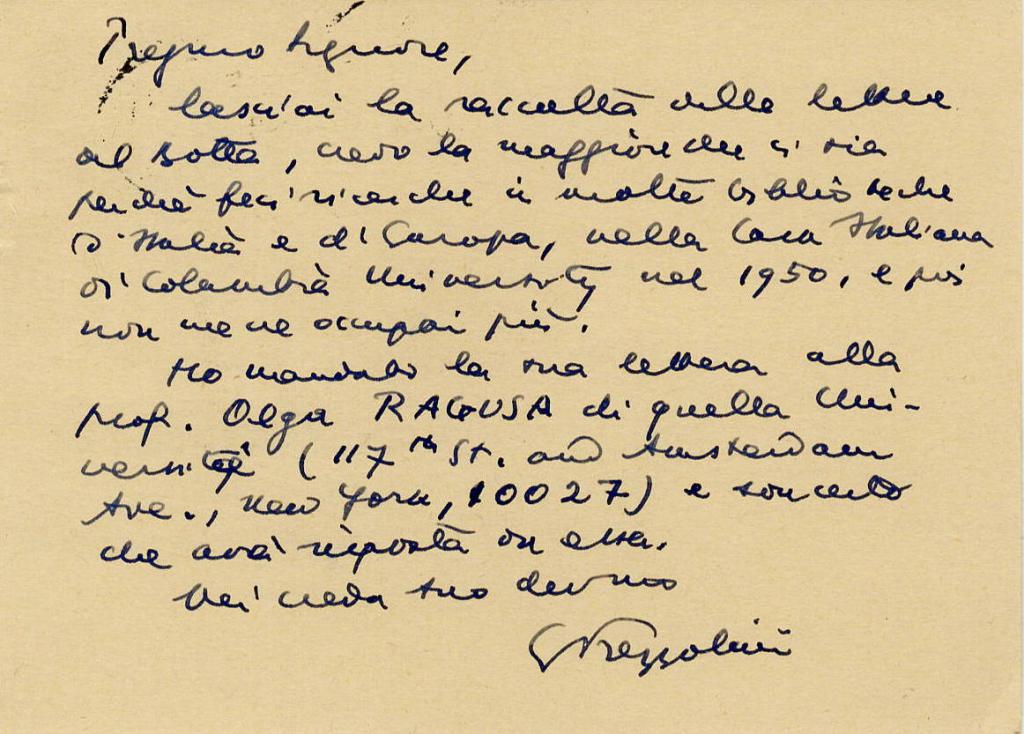 Pregmo Signore,
lasciai la raccolta delle lettere
del Botta, credo la maggiore che ci sia
perché feci ricerche in molte biblioteche
d'Italia e d'Europa, nella Casa Italiana
di Columbia University nel 1950, e poi
non me ne occupai più.
Ho mandato la sua lettera alla
prof. Olga RAGUSA di quella Uni-
versità (117th St. and Amsterdam
Ave., New York, 10027) e son certo
che avrà risposta da essa.
Mi creda suo devmo
GPrezzolini